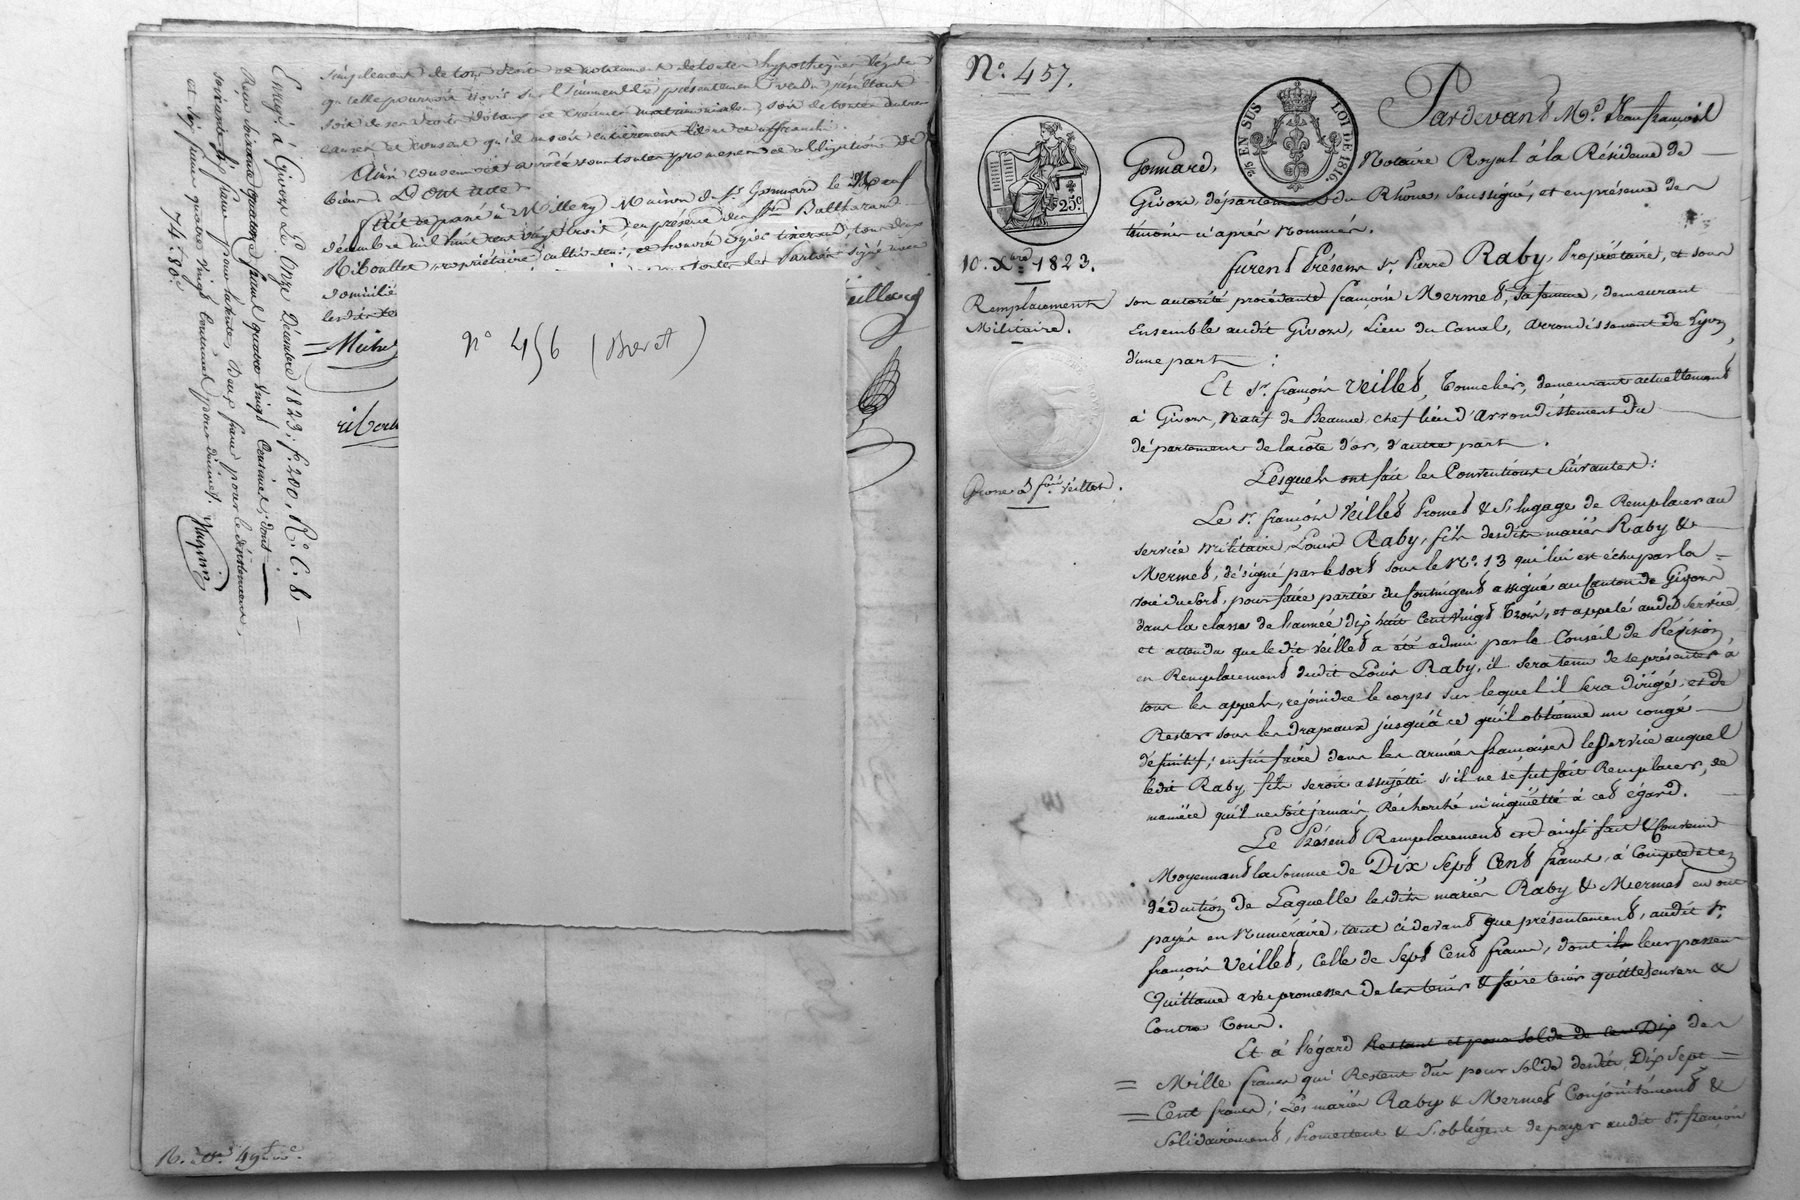 simplement de tous droits et notamment de toutes hypothèques légales
qu'elle pourroit avoir sur l'immeuble présentement vendu, résultant
soit de ses droits dotaux et créances matrimoniales, soit de toutes autres
causes et consent qu'il en soit entièrement libre et affranchi.
Ainsi convenu et arrêté sous toutes promesses et obligations de
biens. Dont acte
fait et passé à Millery, Maison du Sr. Gonnard le Neuf
décembre mil huit cent vingt trois, en présence des Srs Balthazard
Riboullet propriétaire cultivateur, et
domiciliés
Michel
riboul
N° 456 (Brevet)
Enregé à Givors Le Onze Décembre 1823, fo. 200, Ro. C. 8.
Reçu soixante quatorze francs quatre vingt Centimes, dont
soixante six francs pour la vente, Deux francs pour le désistement,
et Six francs quatre vingt Centimes pour décimes.
74: 80c.
No. 457.
2es EN SUS
LOI DE 1816
25c
Pardevant Me. Jean françois
Gonnard, Notaire Royal à la Résidence de
Givors, département du Rhône, Soussigné, et en présence des
témoins ci après Nommés.
10. Xbre 1823.
Remplacement
Militaire.
Grosse à fçois Veillet.
furent Présens Sr. Pierre Raby, Propriétaire, et sous
son autorité procédante françoise Mermet, sa femme, demeurant
Ensemble audit Givors, Lieu du Canal, arrondissement de Lyon,
d'une part ;
Et Sr. françois Veillet, Tonnelier, demeurant actuellement
à Givors, Natif de Beaune, chef lieu d'arrondissement du
département de la Côte d'or, d'autre part.
Lesquels ont fait les Conventions Suivantes:
Le Sr. françois Veillet Promet & S'engage de Remplacer au
service Militaire, Louis Raby, fils desdits mariés Raby &
Mermet, désigné par le sort sous le No. 13 qui lui est échu par la
voie du Sort, pour faire partie du Contingent assigné au Canton de Givors
dans la classe de l'année dix huit Cent Vingt Trois, et appelé audit service
et attendu que ledit Veillet a été admis par le Conseil de Révision,
en Remplacement dudit Louis Raby, il sera tenu de se présenter à
tous les appels, rejoindre le corps sur lequel il sera dirigé, et de
Rester sous les drapeaux jusqu'à ce qu'il obtienne un congé
définitif; enfin faire dans les armées françaises le Service auquel
ledit Raby fils seroit assujetti s'il ne se fut fait Remplacer, de
manière qu'il ne soit jamais Recherché ni inquiétté à cet égard.
Le Présent Remplacement est ainsi fait & Convenu
Moyennant la Somme de Dix Sept Cent francs, à Compte et en
déduction de Laquelle lesdits mariés Raby & Mermet en ont
payés en Numéraire, tant cidevant que présentement, audit Sr.
françois Veillet, Celle de Sept Cent francs, dont il leur passe
Quittance avec promesses de les tenir & faire tenir quittes envers &
Contre Tous.
Et à l'égard Restant et pour solde de ces Dix des
= Mille francs qui Restent dus pour solde desdits Dix Sept =
= Cent francs; Les mariés Raby & Mermet Conjointement &
Solidairement, Promettent & S'obligent de payer audit Sr. françois